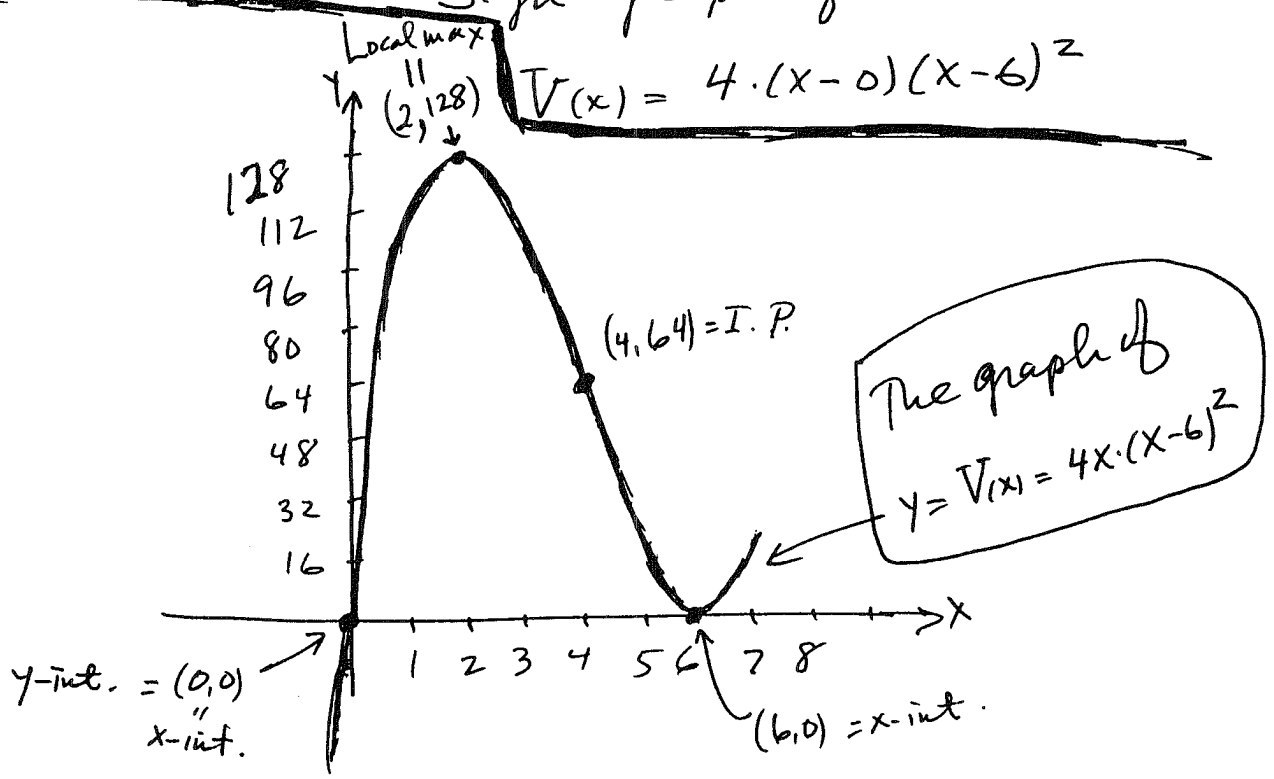 Local max
=
(2,128)
V(x) = 4·(x-0)(x-6)²
Y
128
112
96
80
64
48
32
16
(4,64) = I.P.
The graph of
y = V(x) = 4x·(x-6)²
X
1 2 3 4 5 6 7 8
y-int. = (0,0)
"
x-int.
(6,0) = x-int.